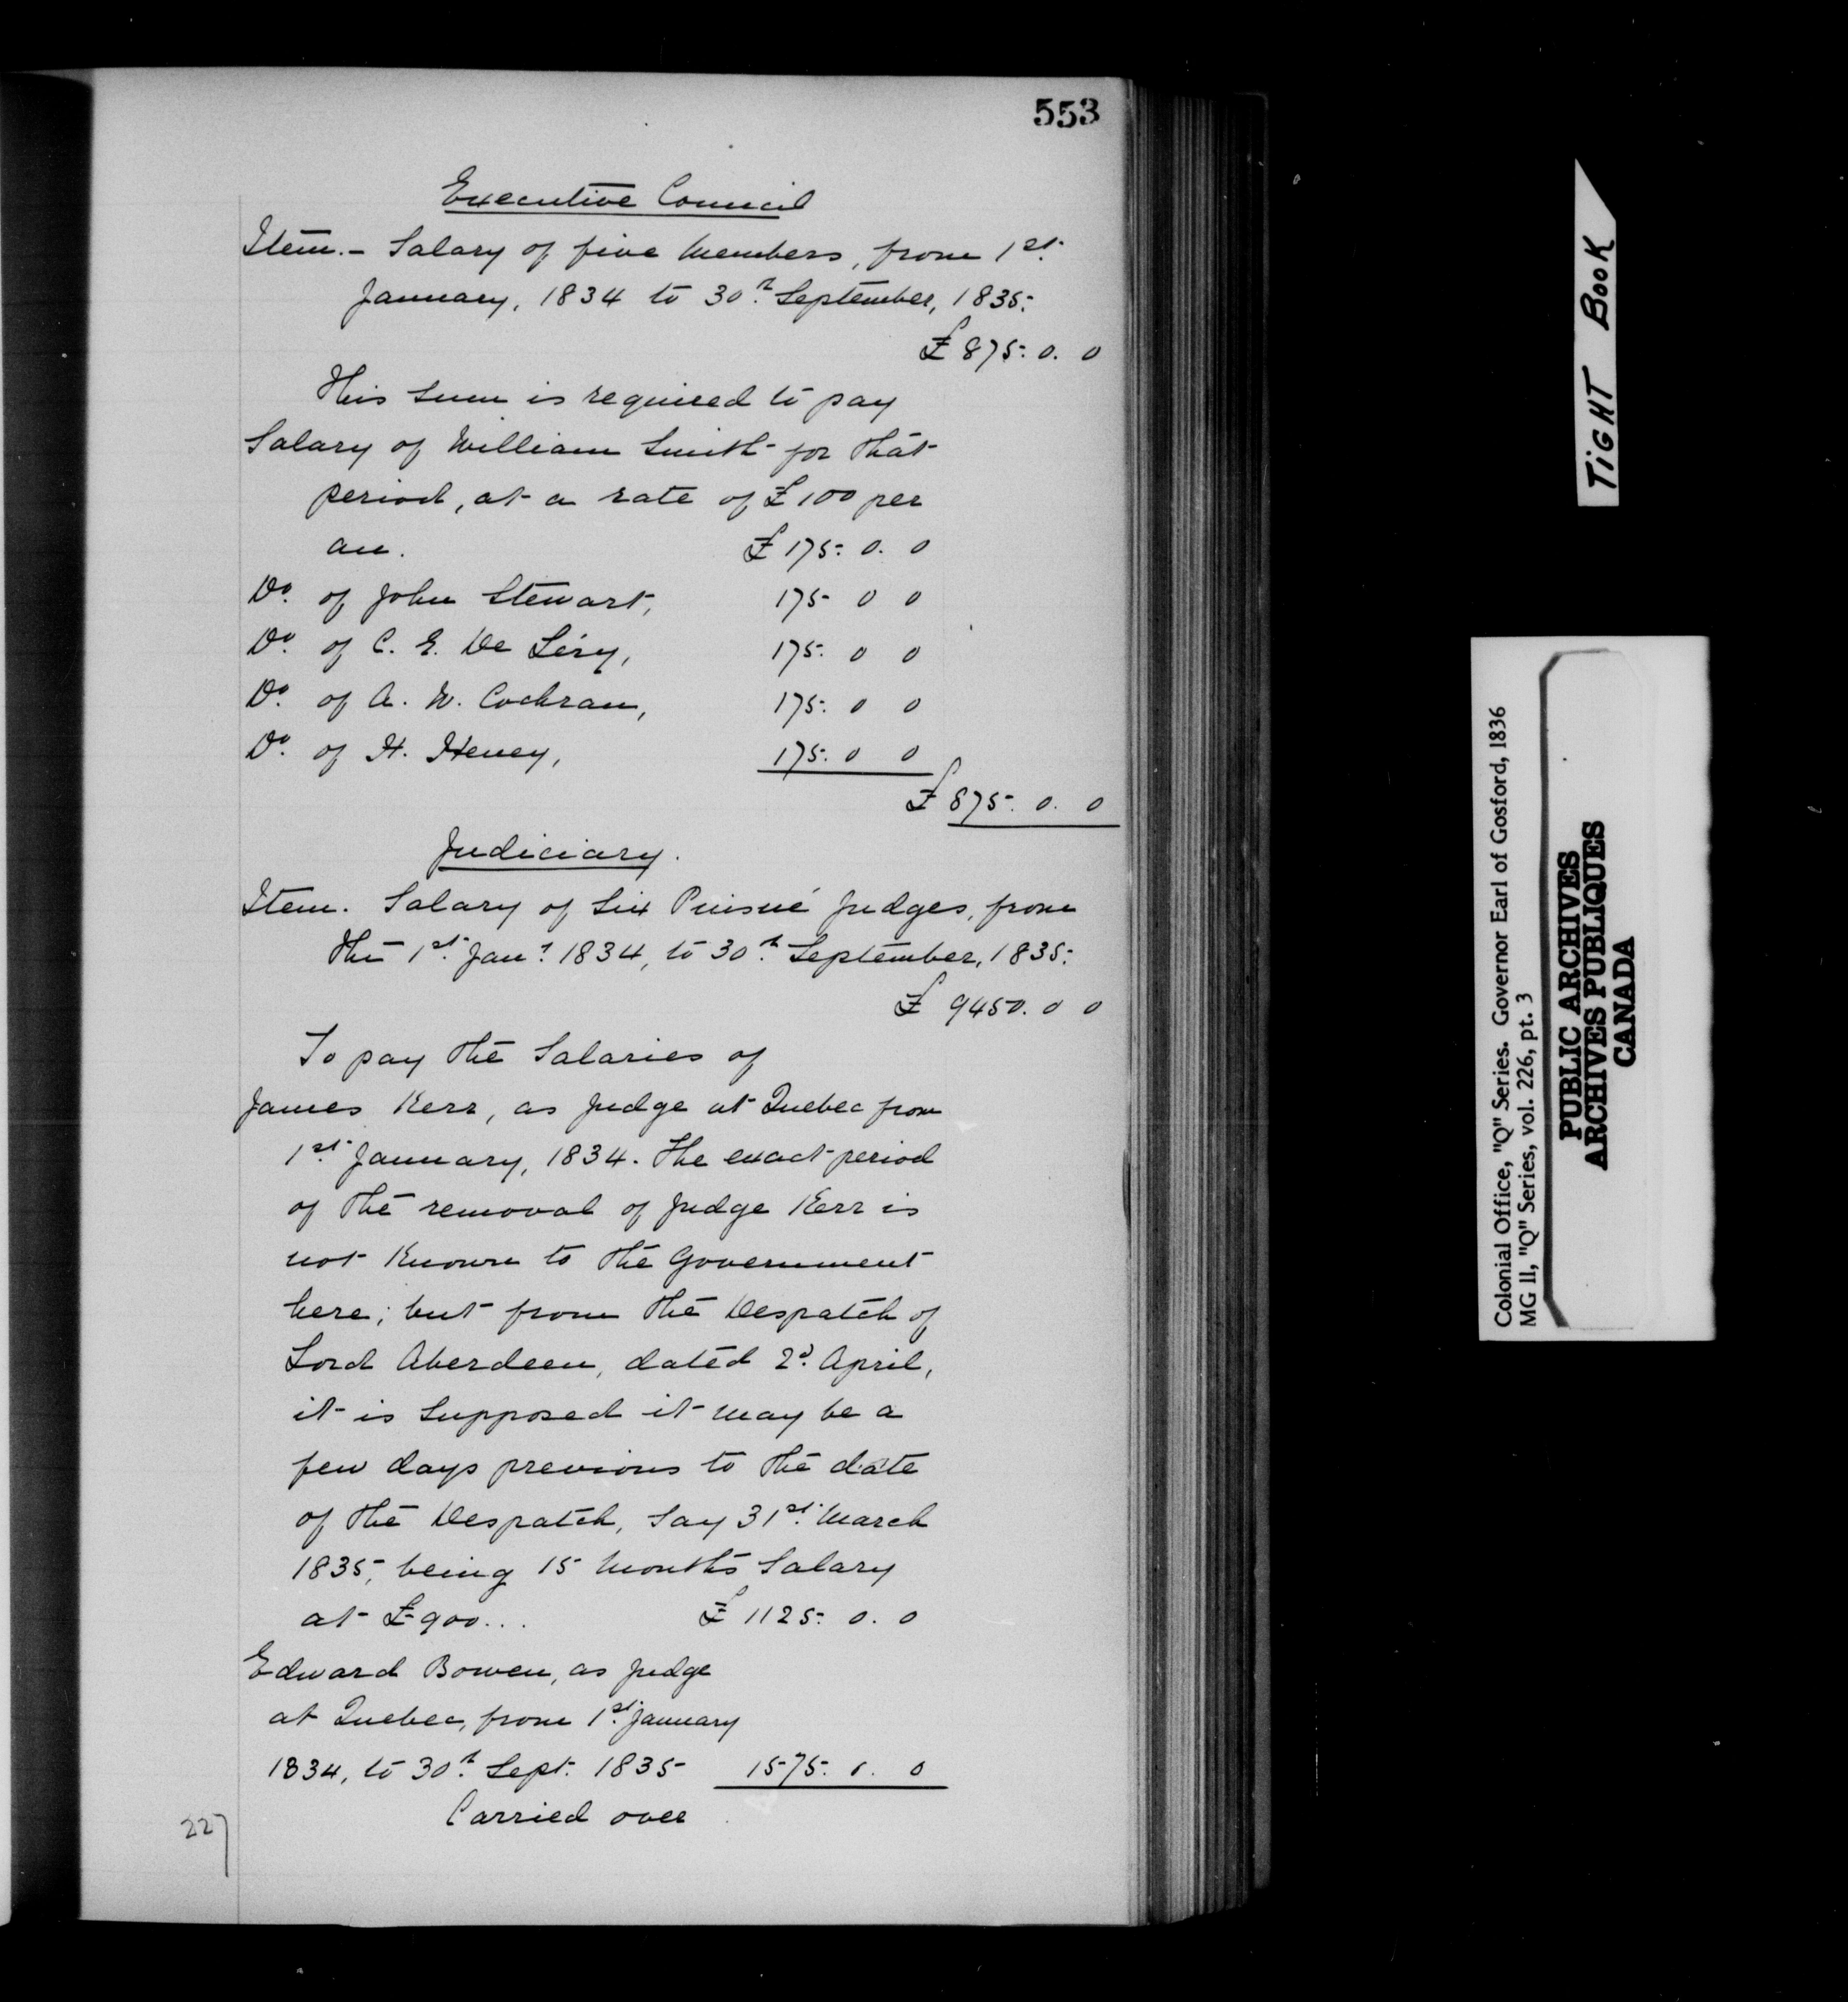 553
Executive Council
Item.- Salary of five Members, from 1st.
January, 1834 to 30th September, 1835.
£ 875. 0. 0
This sum is required to pay
Salary of William Smith for that
period, at a rate of £100 per
an. £ 175. 0. 0
Do. of John Stewart, 175 0 0
Do. of C. E. De Léry, 175. 0 0
Do. of A. W. Cochran, 175. 0 0
Do. of H. Heney, 175. 0 0
£ 875. 0. 0
Judiciary.
Item. Salary of Six Puisné Judges, from
the 1st. Jany. 1834, to 30th September, 1835.
£ 9450. 0 0
To pay the Salaries of
James Kerr, as Judge at Quebec from
1st. January, 1834. The exact period
of the removal of Judge Kerr is
not known to the Government
here; but from the Despatch of
Lord Aberdeen, dated 2d. April,
it is supposed it may be a
few days previous to the date
of the Despatch, say 31st. March
1835, being 15 Months Salary
at £900... £ 1125. 0. 0
Edward Bowen, as Judge
at Quebec, from 1st. January
1834, to 30th. Sept. 1835 1575. 0. 0
Carried over
227
TIGHT BOOK
Colonial Office, "Q" Series. Governor Earl of Gosford, 1836
MG 11, "Q" Series, vol. 226, pt. 3
PUBLIC ARCHIVES
ARCHIVES PUBLIQUES
CANADA